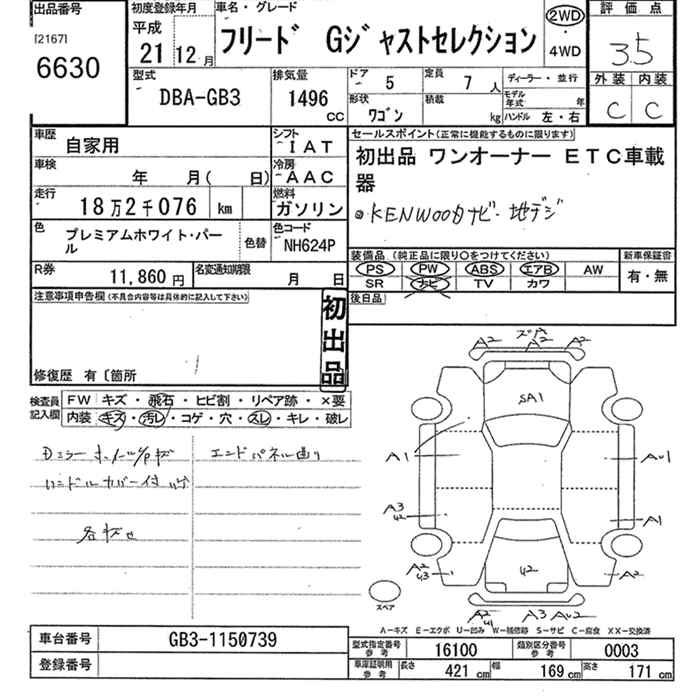 出品番号
[2167]
6630
初度登録年月
平成
21 12月
車名・グレード
フリード Gジャストセレクション
2WD
・
4WD
評価点
3.5
外装 内装
C C
型式
DBA-GB3
排気量
1496 CC
ドア 5
定員 7 人
形状 ワゴン
積載 kg
ディーラー・並行
モデル年式 年
ハンドル 左・右
車歴 自家用
シフト IAT
車検 年 月( 日)
冷房 AAC
走行 18万2千076 km
燃料 ガソリン
色 プレミアムホワイト・パール
色替
色コード NH624P
R券 11,860円
名変通知期限 月 日
セールスポイント(正常に機能するものに限ります)
初出品 ワンオーナー ETC車載
器
KENWOODナビ・地デジ
装備品(純正品に限り〇をつけてください)
新車保証書
PS PW ABS エアB AW
SR ナビ TV カワ
有・無
後日品
注意事項申告欄(不具合内容等は具体的に記入して下さい)
初出品
修復歴 有〔箇所
検査員記入欄
FW キズ・飛石・ヒビ割・リペア跡・×要
内装 キズ・汚レ・コゲ・穴・スレ・キレ・破レ
エンドパネル
ハンドルカバー付
A2 A2 A2
SA1
A1
A3
A1
A2
A2
U2
A3
スペア
A-キズ E-エクボ U-凹み W-補修跡 S-サビ C-腐食 XX-交換済
車台番号 GB3-1150739
登録番号
型式指定番号 参考 16100
類別区分番号 参考 0003
車庫証明用 参考 長さ 421 cm 幅 169 cm 高さ 171 cm